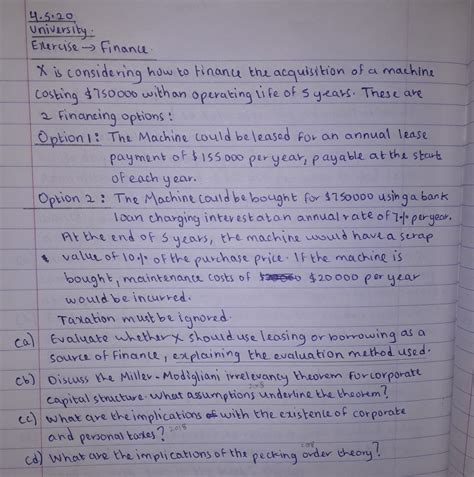 4.5.20
University.
Exercise → Finance.
X is considering how to finance the acquisition of a machine
costing $750000 with an operating life of 5 years. There are
2 financing options:
Option 1: The Machine could be leased for an annual lease
payment of $155 000 per year, payable at the start
of each year.
Option 2: The Machine could be bought for $750000 using a bank
loan charging interest at an annual rate of 7% per year.
At the end of 5 years, the machine would have a scrap
value of 10% of the purchase price. If the machine is
bought, maintenance costs of $20 000 per year
would be incurred.
Taxation must be ignored.
(a) Evaluate whether X should use leasing or borrowing as a
source of finance, explaining the evaluation method used.
(b) Discuss the Miller-Modigliani irrelevancy theorem for corporate
capital structure. What assumptions underline the theorem? 2018
(c) What are the implications of with the existence of corporate
and personal taxes? 2018
(d) What are the implications of the pecking order theory? 2018